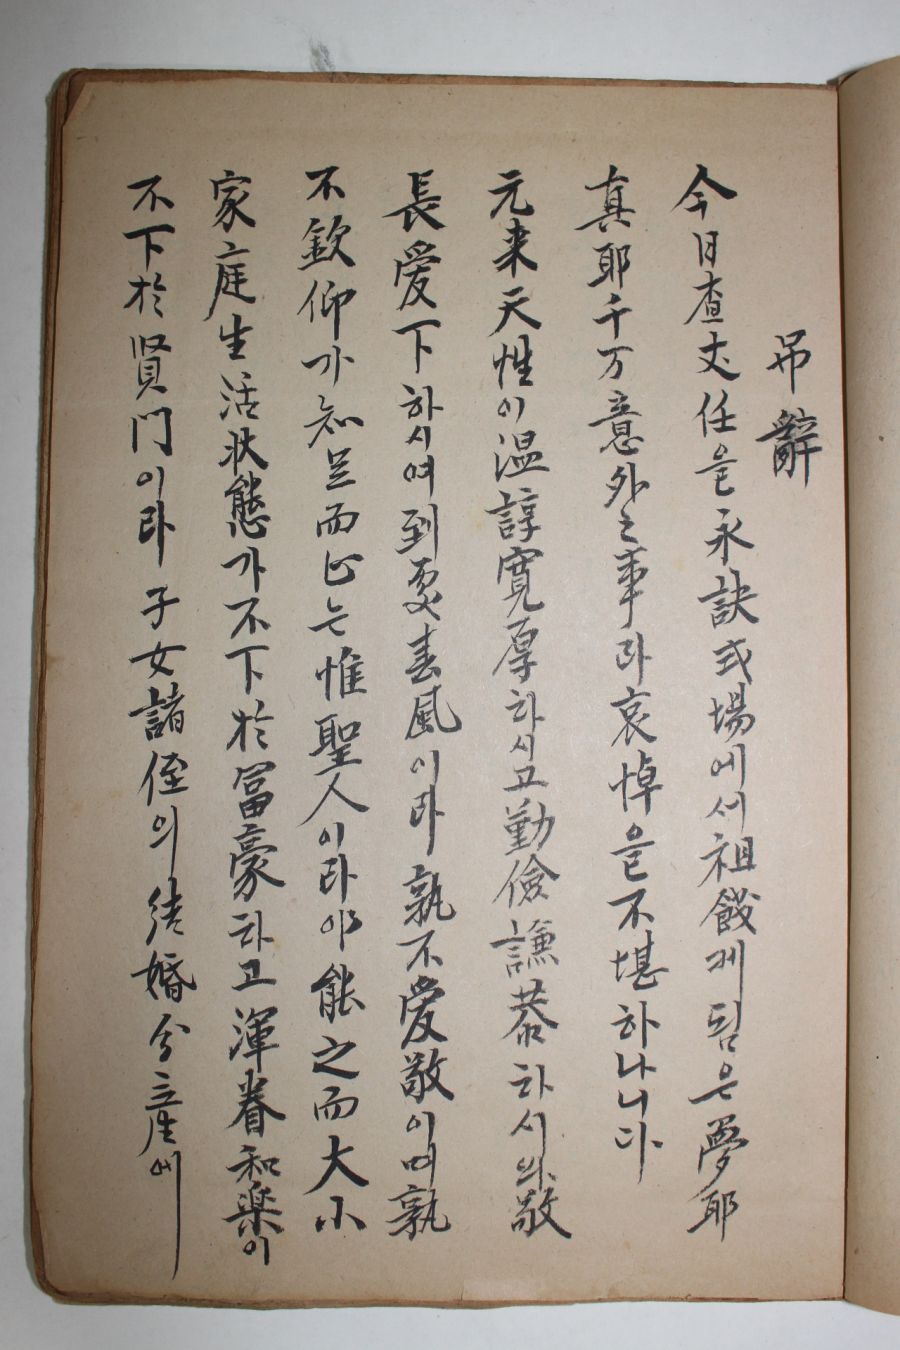 吊辭
今日査丈任을永訣式場에서祖餞케됨은夢耶
真耶千万意外之事라哀悼을不堪하나니다
元来天性이温諄寬厚하시고勤儉謙恭하시며敬
長愛下하시여到處春風이라孰不愛敬이며孰
不欽仰가知足而止는惟聖人이라야能之而大小
家庭生活状態가不下於冨豪하고渾眷和楽이
不下於賢門이라子女諸侄의結婚分産에